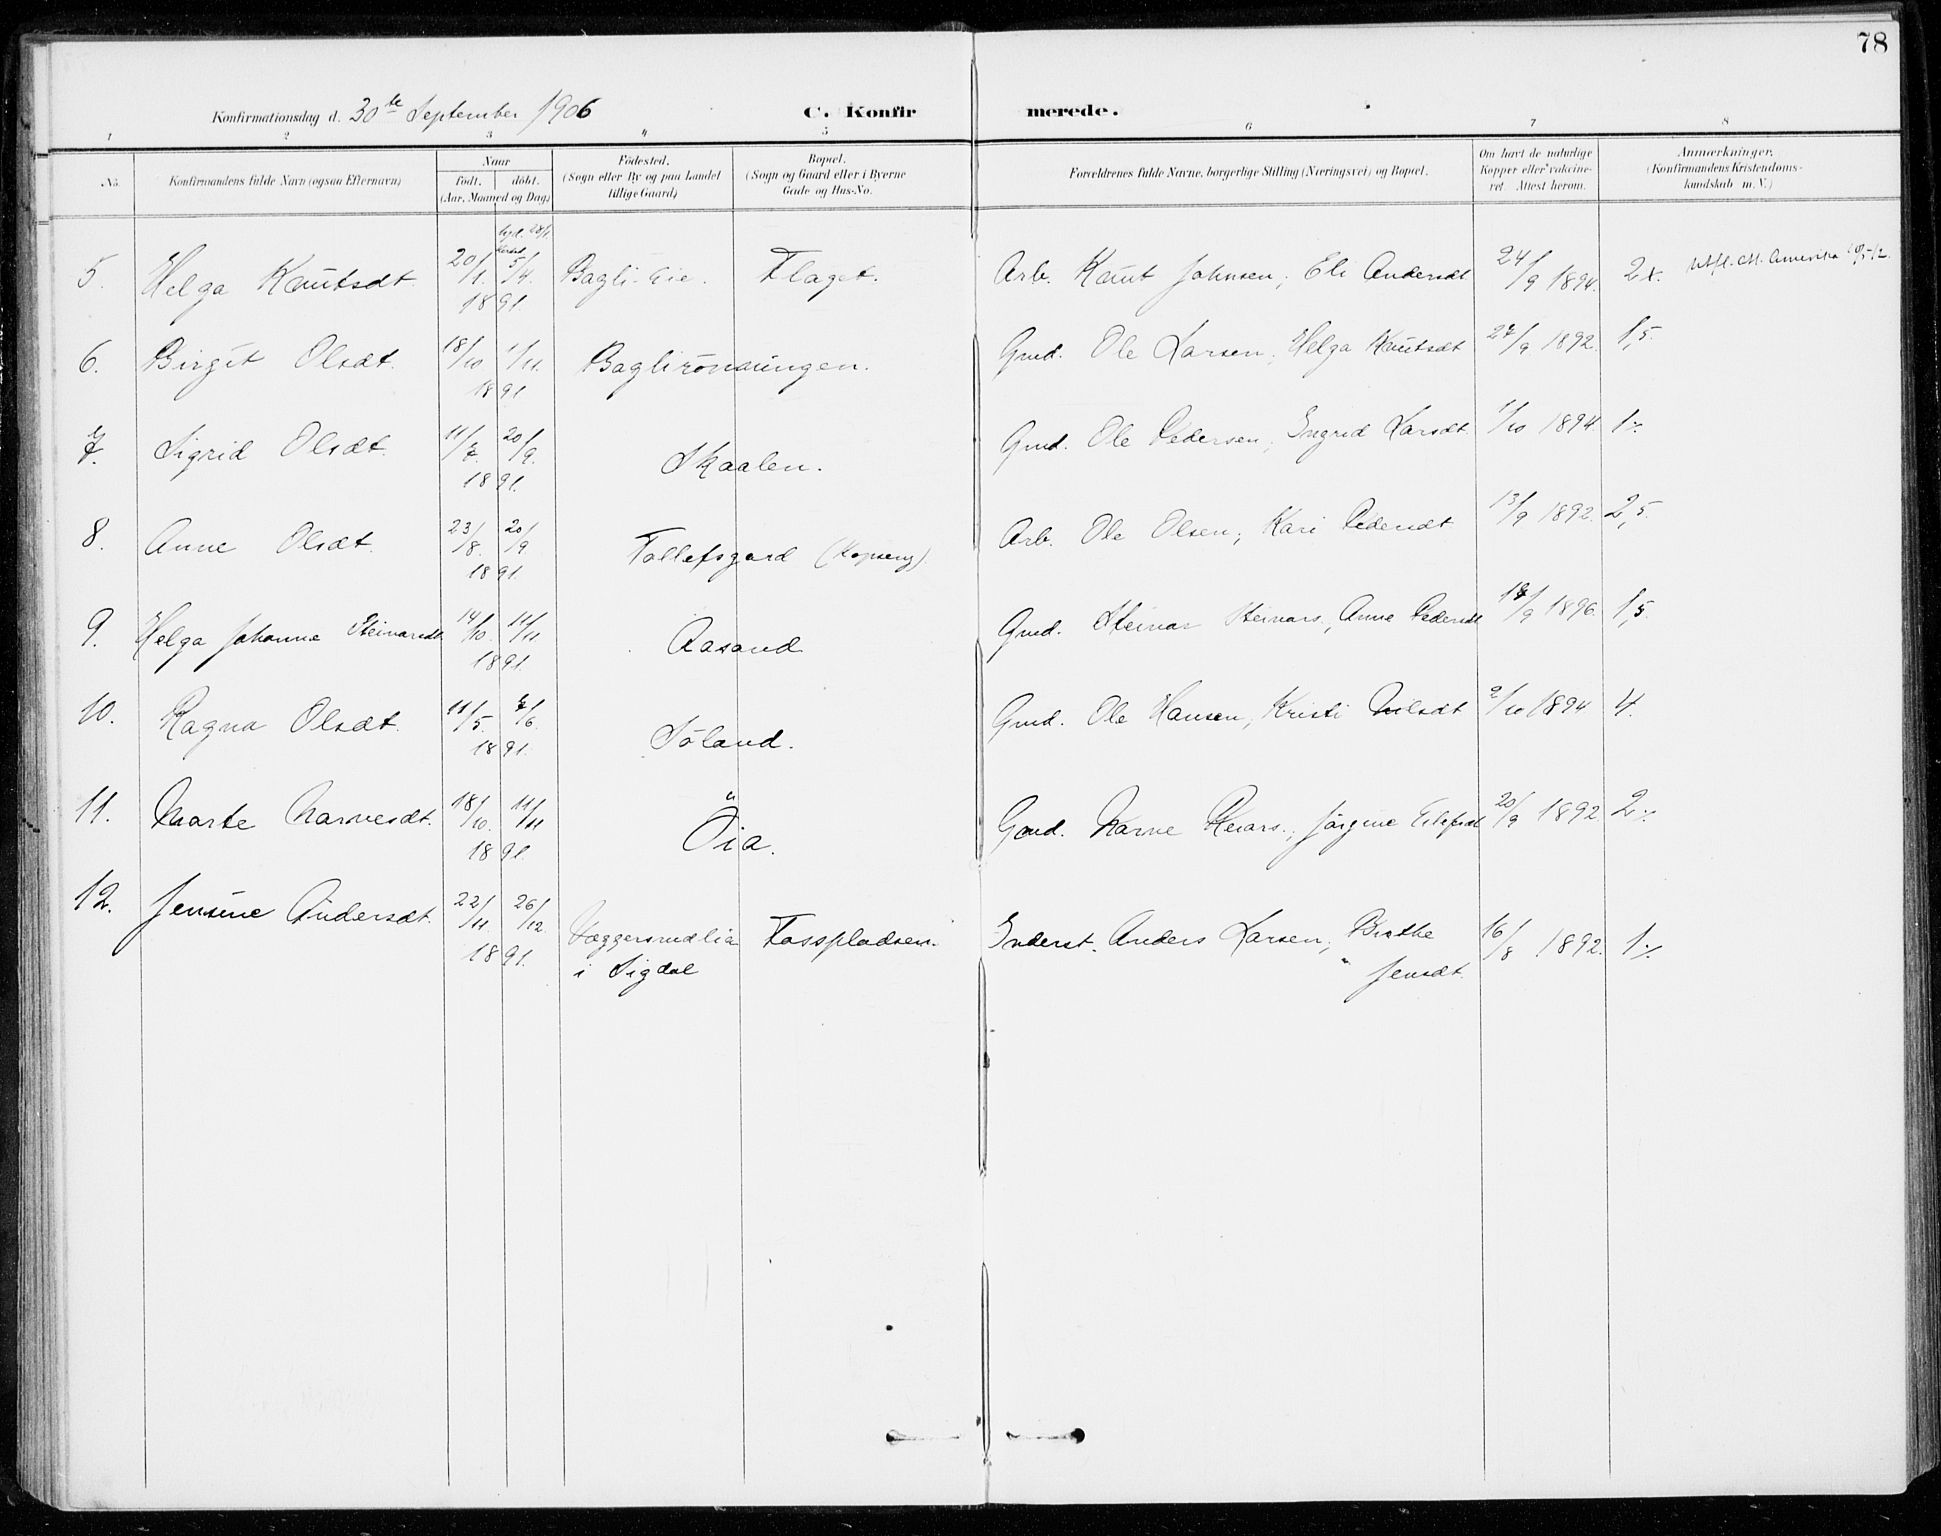 78
Konfirmationsdag d. 30te September 1906 C. Konfirmerede.
1 2 3 4 5 6 7 8
No. Konfirmandens fulde Navn (ogsaa Efternavn) Naar født. døbt. (Aar, Maaned og Dag) Fødested. (Sogn eller By og paa Landet tillige Gaard) Bopæl. (Sogn og Gaard eller i Byerne Gade og Hus-No. Forældrenes fulde Navne, borgerlige Stilling (Næringsvei) og Bopæl. Om havt de naturlige Kopper eller vakcineret. Attest herom. Anmærkninger. (Konfirmandens Kristendomskundskab m. V.)
5. Helga Knutsdt. 20/1. 5/4. 1891. Bagli-eie. Flaget. Arb. Knut Johnsen, Eli Andersdt 24/9 1894. 2 Utfl. Amerika
6. Birgit Olsdt. 18/10 1/11. 1891 Baglirönningen. Gmd. Ole Larsen, Helga Knutsdt 27/9 1892. 1,5.
7. Sigrid Olsdt. 11/7. 20/9. 1891. Skaalen. Gmd. Ole Pedersen, Ingrid Larsdt. 1/10 1894. 1
8. Anne Olsdt. 23/8. 20/9. 1891. Tollefsgard (Kopseng). Arb. Ole Olsen, Kari Pedersdt 13/9 1892. 2,5.
9. Helga Johanne Steinarsdt. 14/10. 11/11 1891. Aasand Gmd. Steinar Steinars., Anne Pedersdt 17/9 1896. 1,5.
10. Ragna Olsdt. 11/5. 7/6. 1891. Söland. Gmd. Ole Hansen, Kristi Nilsdt 2/10 1894 4.
11. Marte Narvesdt. 18/10. 11/11 1891. Öia. Gmd. Narve Reiars., Jørgine 20/9 1892. 2
12. Jensine Andersdt. 22/11. 26/12. 1891. Væggersrudlia Fossplodsen. Inderst. Anders Larsen, Birthe 16/8 1892. 1
i Sigdal Jensdt.